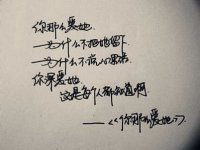 你那么爱她
为什么不把她留下
为什么不说心里话
你深爱她
这是每个人都知道啊
——《你那么爱她》